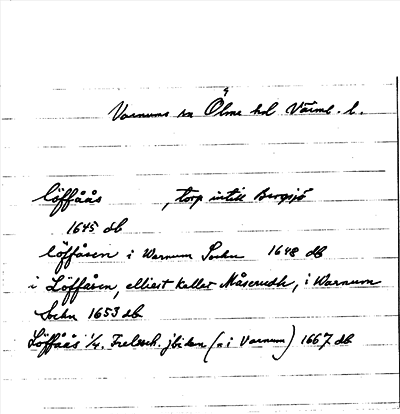 Varnums sn Ölme hd Värml. l.
Löffåås , torp intill Bergsjö
1645 db
Löffåsen i Warnum Sochn 1648 db
i Löffåsen, elliest kallet Måserudh, i Warnum
Sochn 1653 db
Löffåås 1/4. Frelsesk. jbiken (n i Varnum) 1667 db